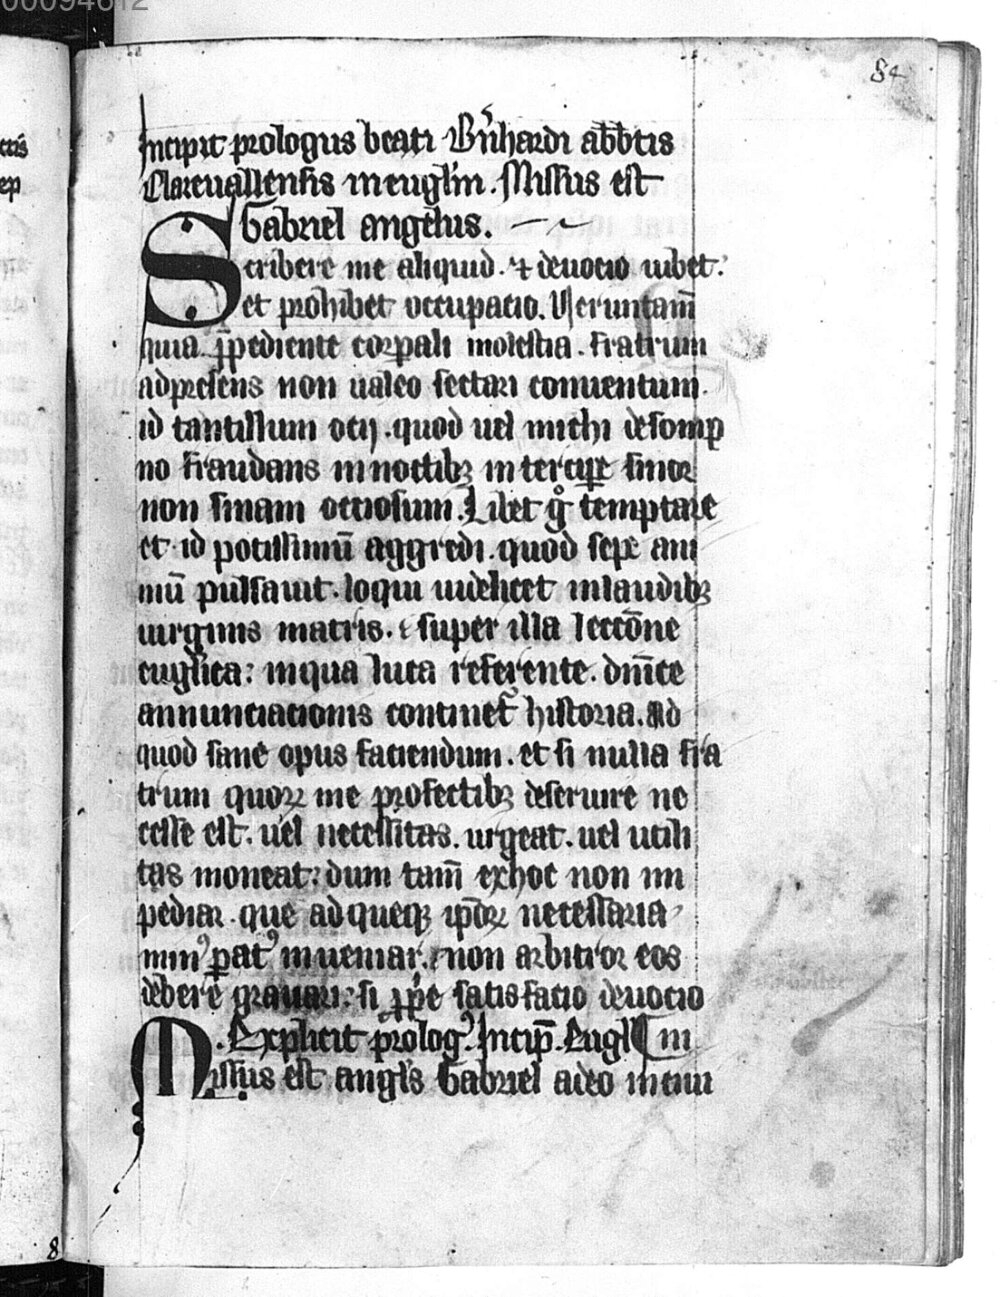 00094612
84
Incipit prologus beati Bn̄hardi abb̄tis
Clareuallensis in euglīm. Missus est
Gabriel angelus.
Scribere me aliquid. ⁊ deuocio iubet.
et prohibet occupacio. Ueruntam̄
quia p̄pediente corꝑali molestia. fratrum
adpresens non ualeo sectari conuentum.
id tantillum ocij. quod uel michi desomp
no fraudans innoctibꝫ intercipe sinor
non sinam occiosum. Libet gͦ temptare
et id potissimū aggredi. quod sepe ani
mū pulsauit. loqui uidelicet inlaudibꝫ
uirginis matris. super illa lectōne
euglīca: inqua luca referente. dnīce
annunciacionis continet᷑ historia. Ad
quod sane opus faciendum. et si nulla fra
trum quoꝝ me profectibꝫ deseruire ne
cesse est. uel necessitas. urgeat. uel utili
tas moneat: dum tam̄ exhoc non im
pediar. que ad queqꝫ ip̄oꝝ necessaria
minꝰ patꝰ inueniar. non arbitror eos
debere grauari: si ꝓp̄e satisfacio deuocio
ni. Explicit prologꝰ. Incip̄. Eugl̄
Missus est angl̄s Gabriel adeo inciui
8